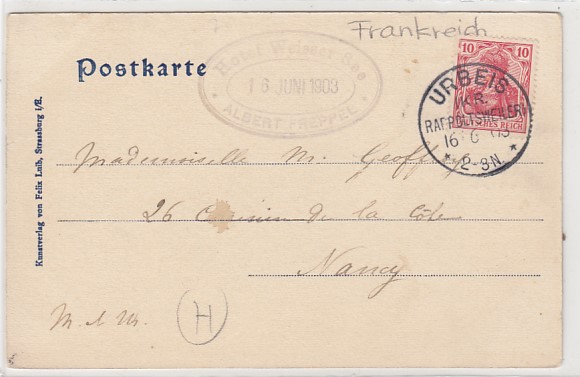 Frankreich
Postkarte
Hotel Weisser See
16 JUNI 1903
ALBERT FREPPEL
10 10
REICH
URBEIS
KR.
RAPPOLTSWEILER
16 6 03
* 2-3N. *
Mademoiselle M. Geoffroy
26 Chemin de la Côte
Nancy
H
Kunstverlag von Felix Luib, Strassburg i/E.